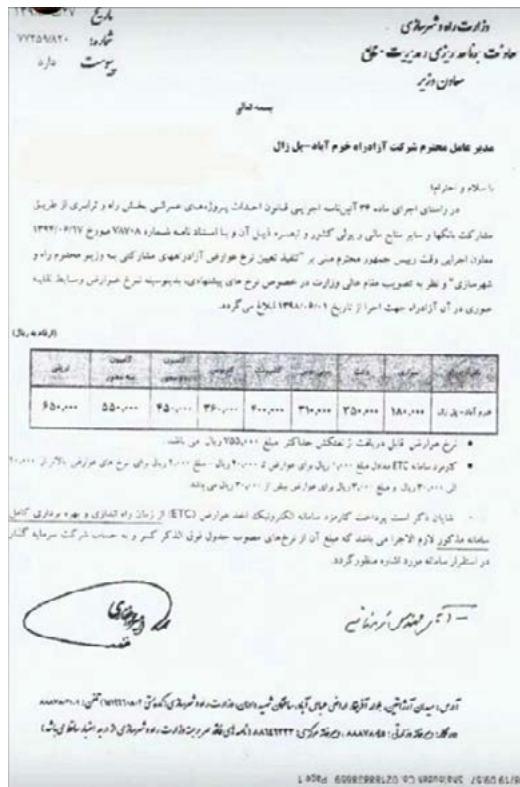 وزارت راه و شهرسازی
معاونت برنامه ریزی و مدیریت منابع
معاون وزیر
تاریخ
شماره: ۷۷۲۵۹/۸۲۰
پیوست دارد
بسمه تعالی
مدیر عامل محترم شرکت آزادراه خرم آباد-پل زال
با سلام و احترام؛
در راستای اجرای ماده ۳۶ آئین‌نامه اجرایی قانون احداث پروژه‌های عمرانی بخش راه و ترابری از طریق
مشارکت بانکها و سایر منابع مالی و پولی کشور و تبصره ذیل آن و با استناد نامه شماره ۷۸۷۰۸ مورخ ۱۳۹۴/۰۶/۱۷
معاون اجرایی وقت رییس جمهور محترم مبنی بر "تنفیذ تعیین نرخ عوارض آزادراههای مشارکتی به وزیر محترم راه و
شهرسازی" و نظر به تصویب مقام عالی وزارت در خصوص نرخ های پیشنهادی، بدینوسیله نرخ عوارض وسایط نقلیه
عبوری در آن آزادراه جهت اجرا از تاریخ ۱۳۹۸/۰۶/۰۱ ابلاغ می گردد.
(ارقام به ریال)
سواری وانت مینی بوس کامیونت اتوبوس کامیون دو محور کامیون سه محور تریلی
خرم آباد - پل زال ۱۸۰,۰۰۰ ۲۵۰,۰۰۰ ۳۱۰,۰۰۰ ۴۰۰,۰۰۰ ۳۶۰,۰۰۰ ۴۵۰,۰۰۰ ۵۵۰,۰۰۰ ۶۵۰,۰۰۰
نرخ عوارض قابل دریافت از نفتکش حداکثر مبلغ ۷۵۵,۰۰۰ ریال می باشد.
کارمزد سامانه ETC معادل مبلغ ریال برای عوارض تا ۲۰,۰۰۰ ریال - مبلغ ۲,۰۰۰ ریال برای نرخ های عوارض بالاتر از ۲۰,۰۰۰
الی ۳۰,۰۰۰ ریال و مبلغ ۳,۰۰۰ ریال برای عوارض بیش از ۳۰,۰۰۰ ریال می باشد
شایان ذکر است پرداخت کارمزد سامانه الکترونیک اخذ عوارض (ETC) از زمان راه اندازی و بهره برداری کامل
سامانه مذکور لازم الاجرا می باشد که مبلغ آن از نرخ‌های مصوب جدول فوق الذکر کسر و به حساب شرکت سرمایه گذار
در استقرار سامانه مورد اشاره منظور گردد.
آدرس: میدان آرژانتین، بلوار آفریقا، اراضی عباس آباد، ساختمان شهید دادمان، وزارت راه و شهرسازی